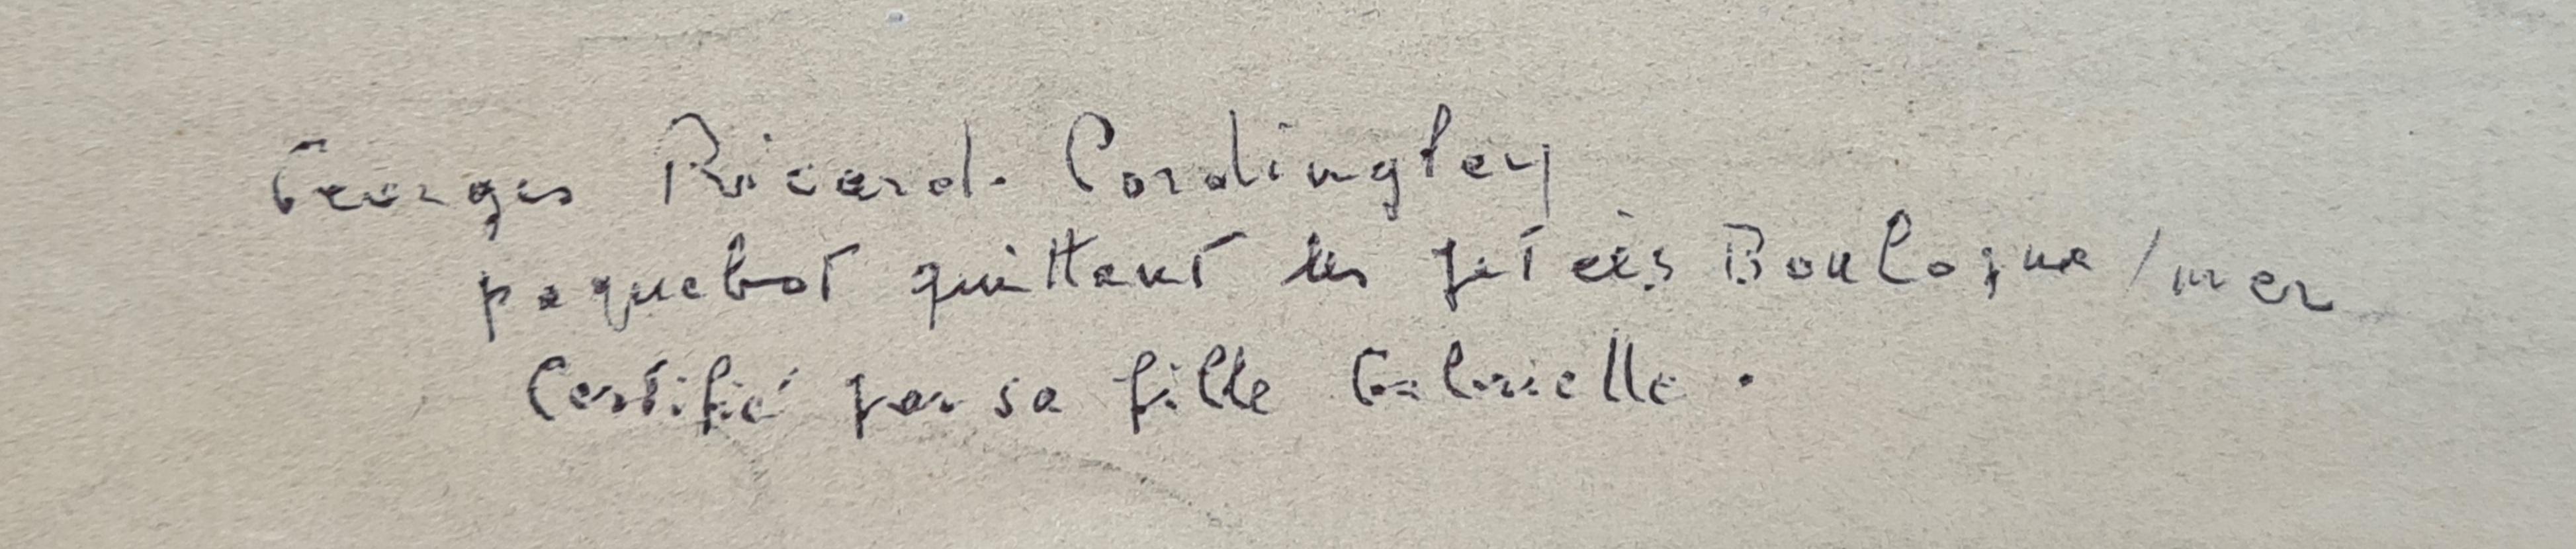 Georges Ricard-Cordingley
paquebot quittant les jetées Boulogne/mer
Certifié par sa fille Gabrielle.